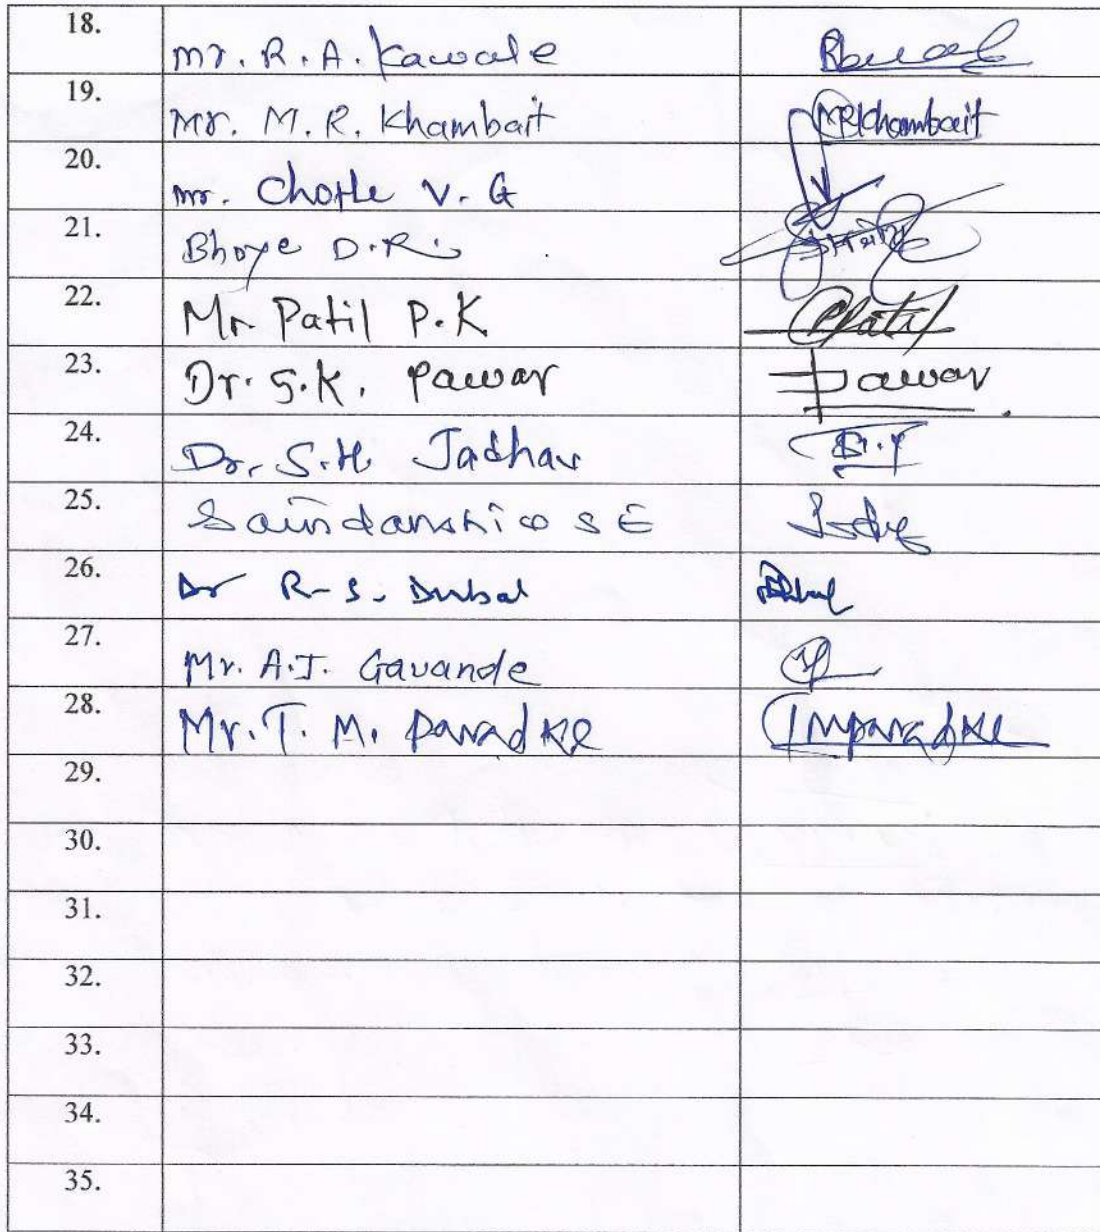 18. Mr. R. A. Kawale
19. Mr. M. R. Khambait MRKhambait
20. Mr. Chotle V. G
21. Bhoye D.R.
22. Mr. Patil P.K PPatil
23. Dr. S.K. Pawar Pawar
24. Dr. S.H. Jadhav
25. S E
26. Dr R-S. Dubal
27. Mr. A.J. Gavande
28. Mr. T. M. Paradke TMParadke
29.
30.
31.
32.
33.
34.
35.